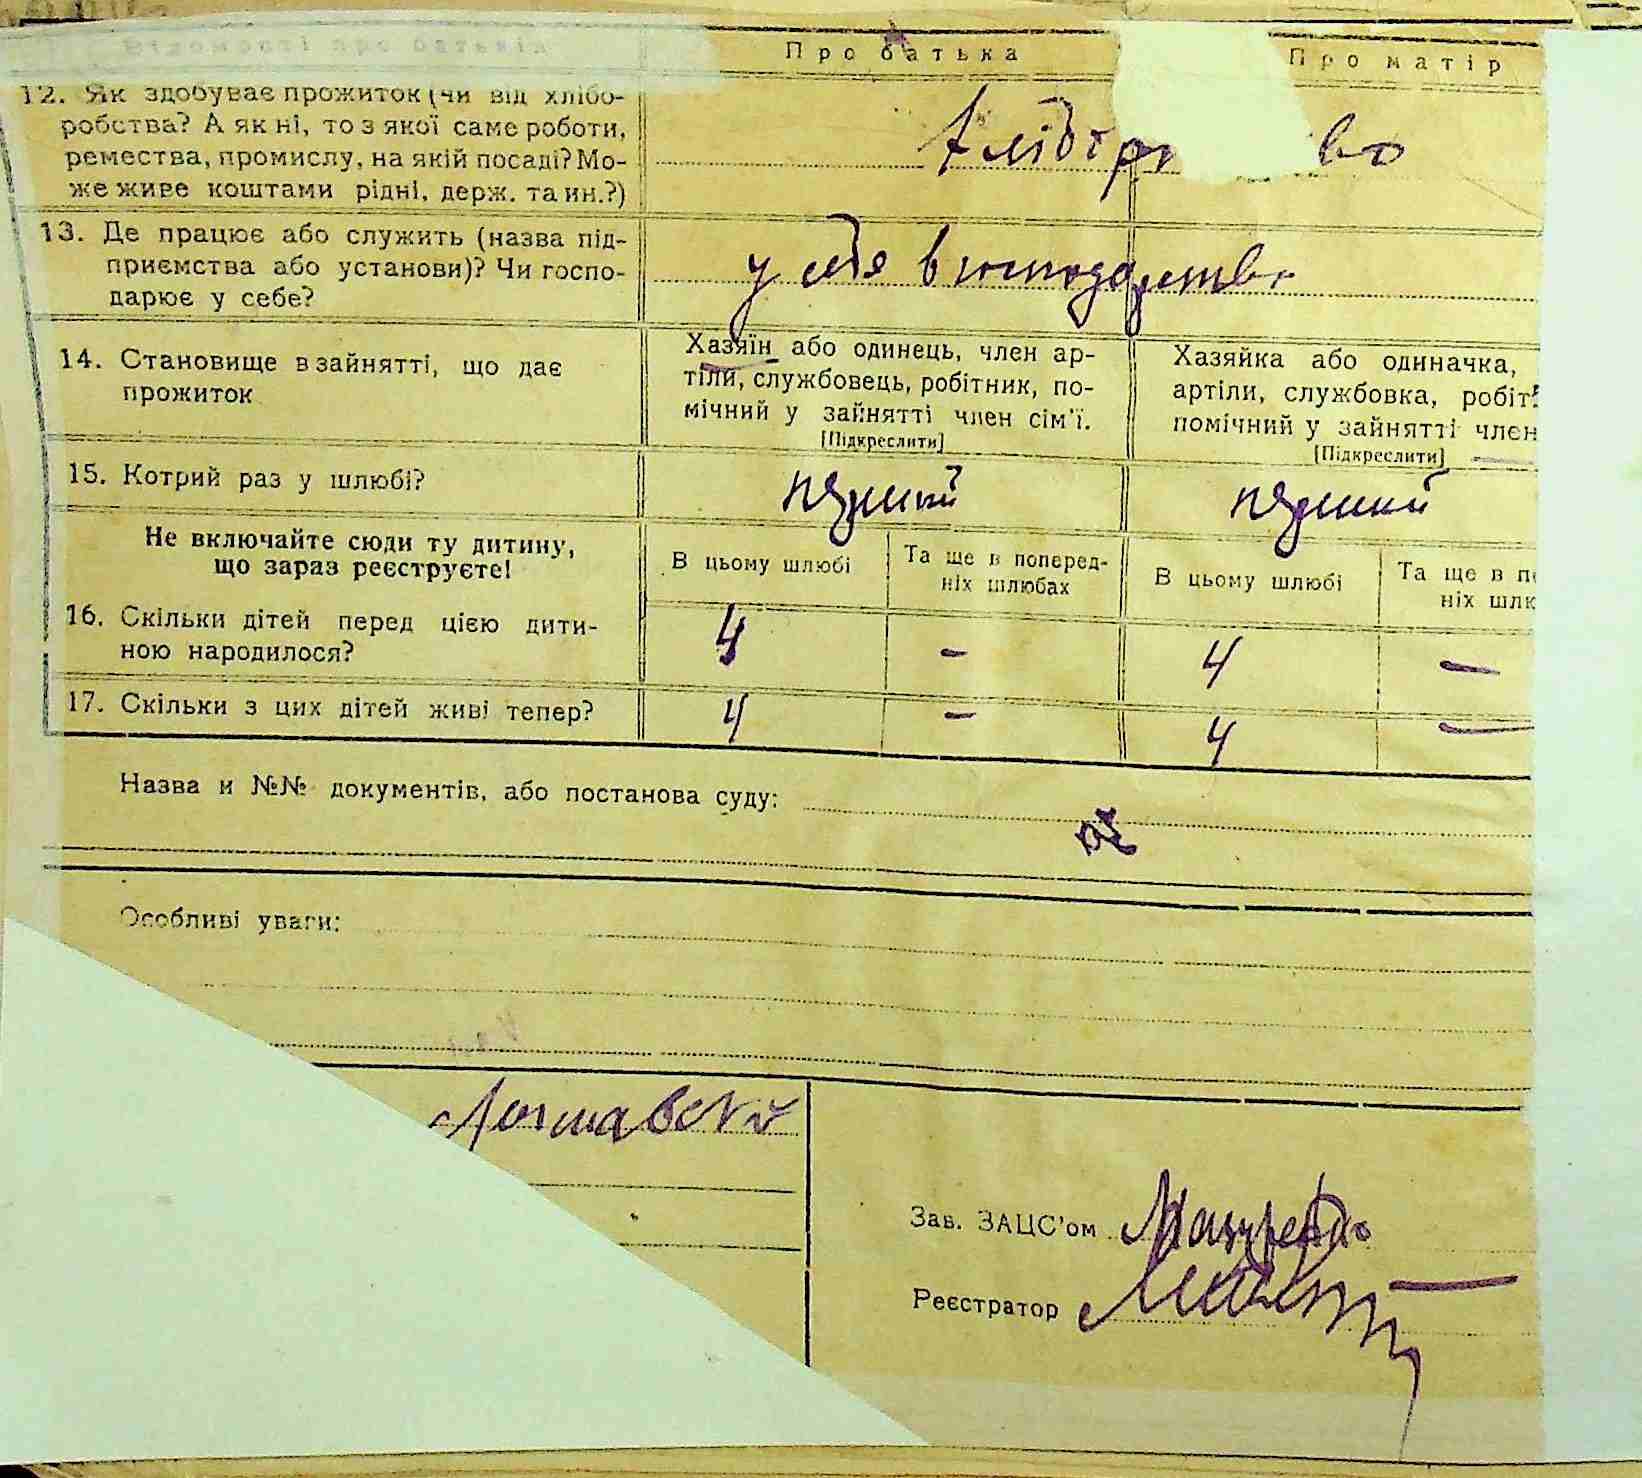 Відомості про батьків
Про батька
Про матір
12. Як здобуває прожиток (чи від хлібо-
робства? А як ні, то з якої саме роботи,
ремества, промислу, на якій посаді? Мо-
же живе коштами рідні, держ. та ин.?)
13. Де працює або служить (назва під-
приємства або установи)? Чи госпо-
дарює у себе?
у себя в господарстві
14. Становище в зайнятті, що дає
прожиток
Хазяїн або одинець, член ар-
тіли, службовець, робітник, по-
мічний у зайнятті член сім'ї.
[Підкреслити]
Хазяйка або одиначка,
артіли, службовка, робіт
помічний у зайнятті член
[Підкреслити]
15. Котрий раз у шлюбі?
перший
перший
Не включайте сюди ту дитину,
що зараз реєструєте!
В цьому шлюбі
Та ще в поперед-
ніх шлюбах
В цьому шлюбі
Та ще в п
ніх шлю
16. Скільки дітей перед цією дити-
ною народилося?
4 - 4 —
17. Скільки з цих дітей живі тепер?
4 - 4 —
Назва и №№ документів, або постанова суду:
Особливі уваги:
Зав. ЗАЦС'ом
Реєстратор